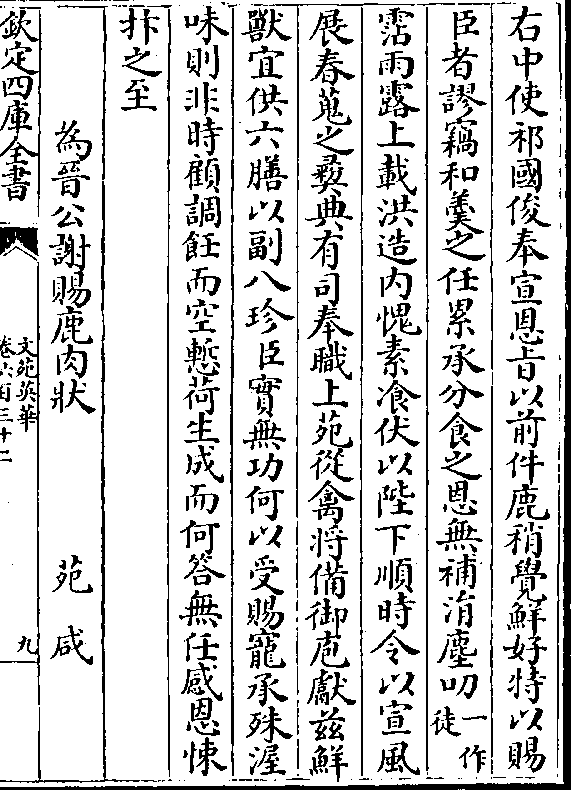 右中使祁國俊奉宣恩旨以前件鹿稍覺鮮好特以賜
臣者謬竊和羹之任累承分食之恩無補涓塵叨一作徒
霑雨露上載洪造内愧素飡伏以陛下順時令以宣風
展春蒐之彜典有司奉職上苑從禽將備御庖獻兹鮮
獸宜供六膳以副八珍臣實無功何以受賜寵承殊渥
味則非時顧調飪而空慙荷生成而何答無任感恩悚
抃之至
為晉公謝賜鹿肉狀 苑咸
欽定四庫全書
文苑英華
卷六百三十二
九